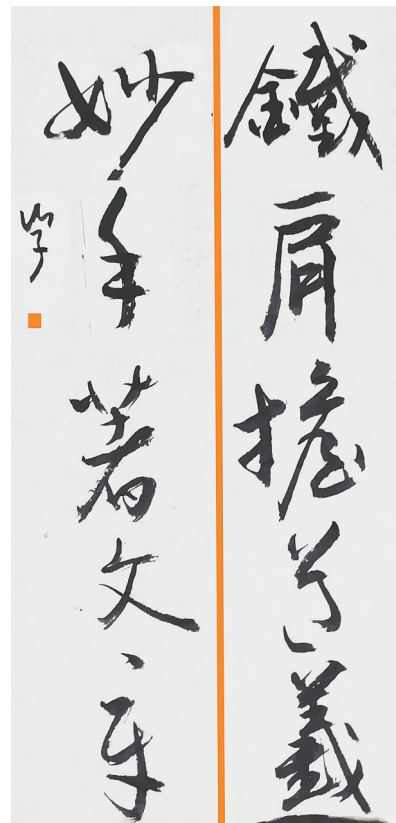 鐵肩擔道義
妙手著文章